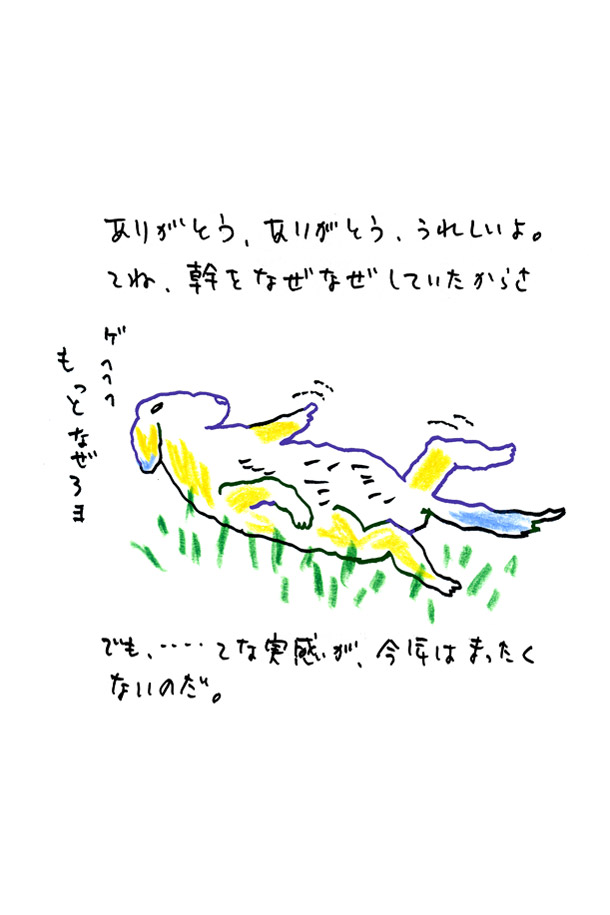 ありがとう、ありがとう、うれしいよ。
てね、幹をなぜなぜしていたからさ
ゲへへへ
もっとなぜろま
でも、‥‥てな実感が、今年はまったく
ないのだ。